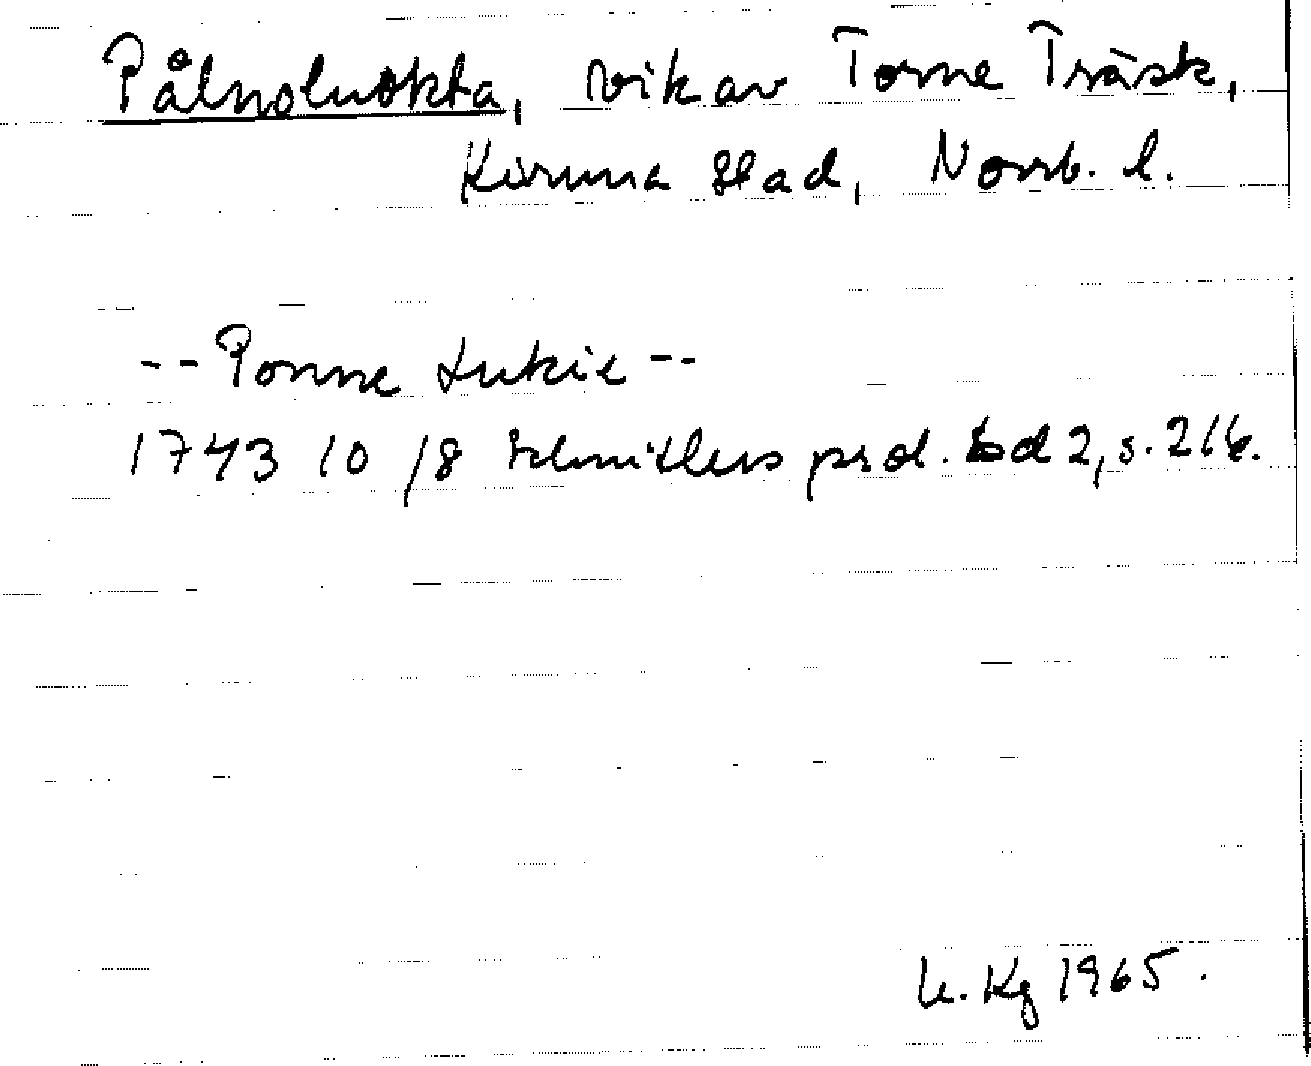 Pålnoluokta, vik av Torne Träsk,
Kiruna stad, Norrb. l.
-- Ponne Lukie --
1743 10/8 Schnitlers prd. bd 2, s. 216.
U. Kg 1965.